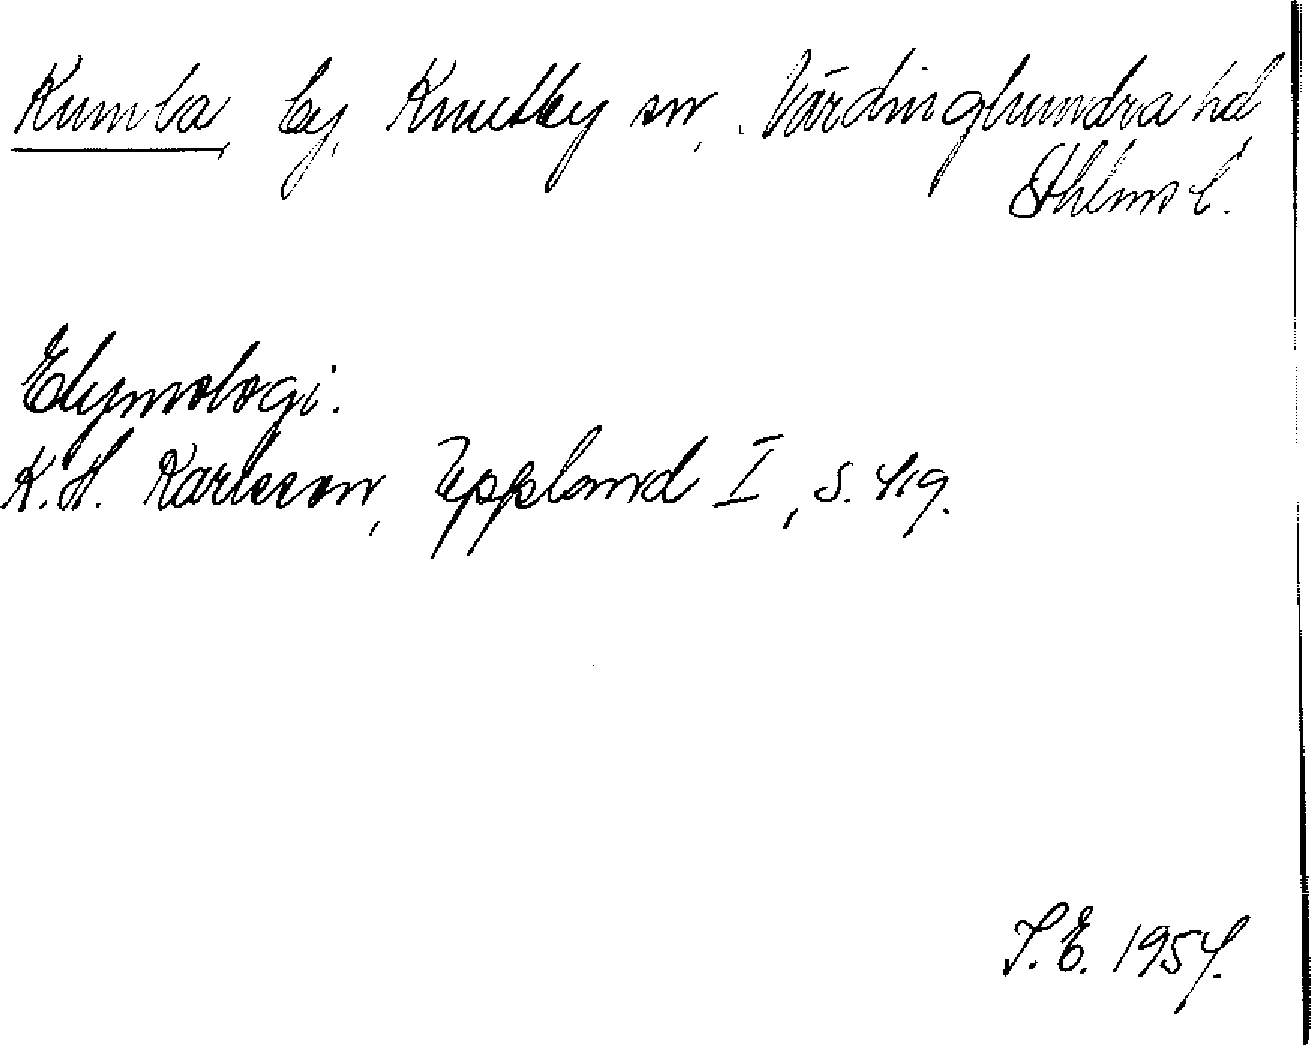 Kumla, by, Knutby sn, Närdinghundra hd,
Sthlms l.
Etymologi.
K.H. Karlsson, Uppland I, s. 419.
S.E. 1954.